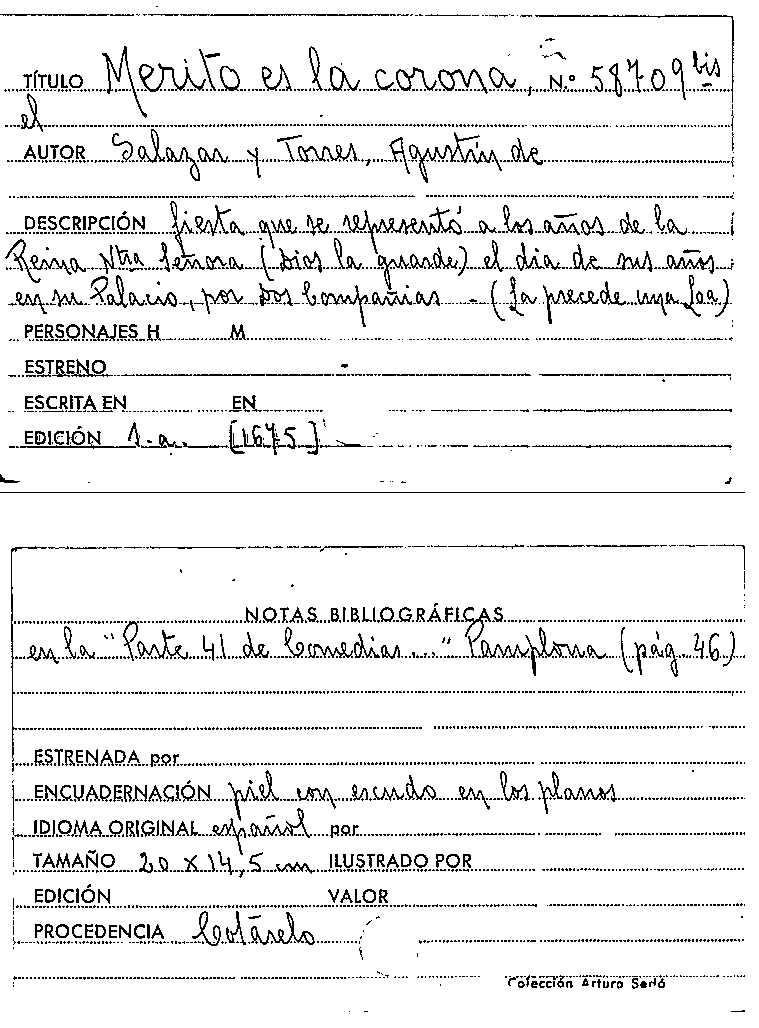 TÍTULO Merito es la corona, N.º 58709 bis
el
AUTOR Salazar y Torres, Agustín de
DESCRIPCIÓN fiesta que se representó a los años de la
Reina Ntra Señora (Dios la guarde) el dia de sus años
en su Palacio, por Dos Compañias - (La precede una Loa)
PERSONAJES H M
ESTRENO
ESCRITA EN EN
EDICIÓN 1.a. [1675]
NOTAS BIBLIOGRÁFICAS
en la "Parte 41 de Comedias..." Pamplona (pág. 46)
ESTRENADA por
ENCUADERNACIÓN piel con escudo en los planos
IDIOMA ORIGINAL español por
TAMAÑO 20 x 14,5 cm ILUSTRADO POR
EDICIÓN VALOR
PROCEDENCIA Cotarelo
Colección Arturo Sedó